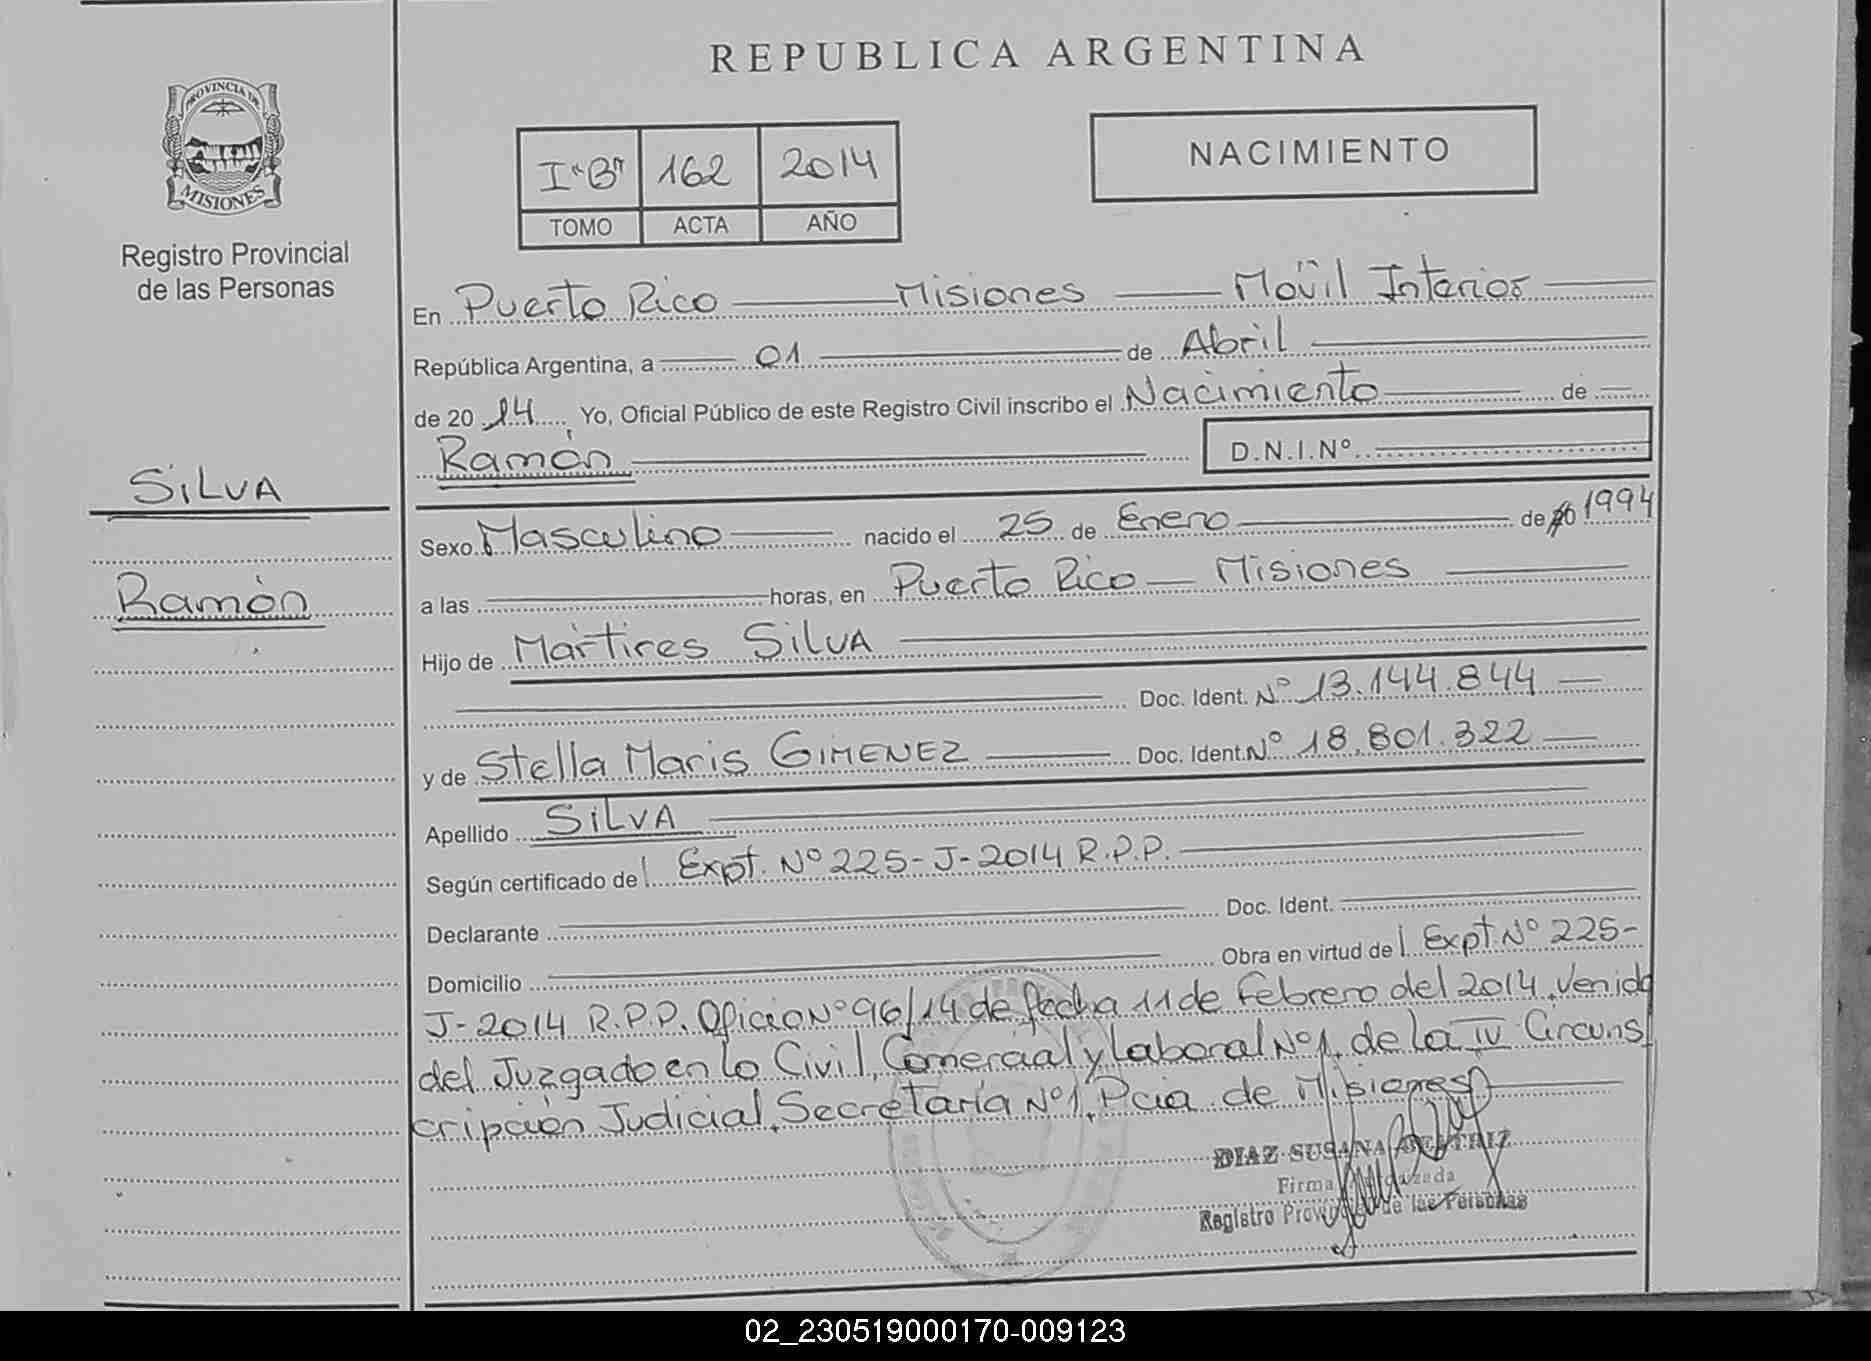 REPUBLICA ARGENTINA
PROVINCIA DE
MISIONES
Registro Provincial
de las Personas
I "B" 162 2014
TOMO ACTA AÑO
NACIMIENTO
En Puerto Rico Misiones Movil Interior
República Argentina, a 01 de Abril
de 20 14 Yo, Oficial Público de este Registro Civil inscribo el Nacimiento de
Ramón D.N.I.Nº
SILVA
Ramón
Sexo Masculino nacido el 25 de Enero de 1994
a las horas, en Puerto Rico Misiones
Hijo de Mártires SILVA
Doc. Ident. Nº 13.144.844
y de Stella Maris GIMENEZ Doc. Ident. Nº 18.801.322
Apellido SILVA
Según certificado de Expt. Nº 225-J-2014 R.P.P.
Declarante Doc. Ident.
Domicilio Obra en virtud de Expt Nº 225-
J-2014 R.P.P. Oficio Nº 96/14 de fecha 11 de Febrero del 2014, venido
del Juzgado en lo Civil, Comercial y Laboral Nº 1, de la IV Circuns
cripción Judicial, Secretaría Nº 1, Pcia de Misiones
DIAZ SUSANA BEATRIZ
Firma Autorizada
Registro Provincial de las Personas
02_230519000170-009123